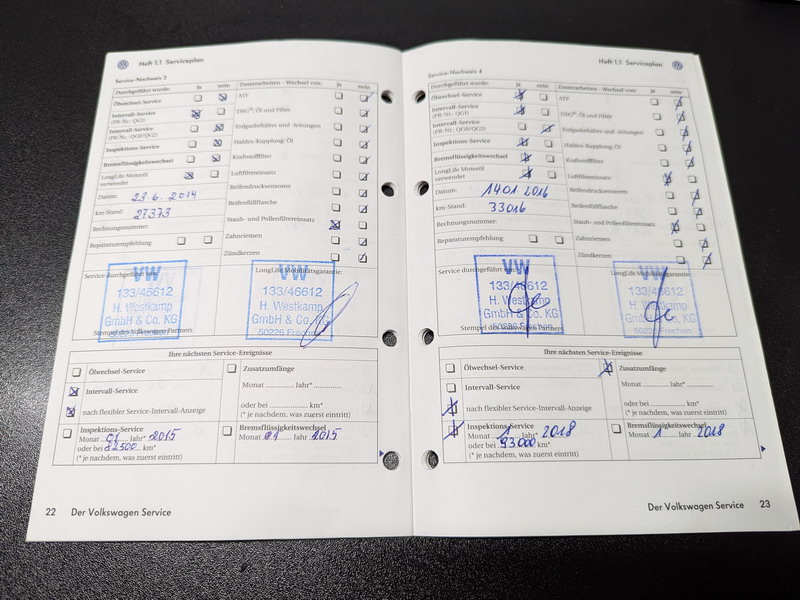 Heft 1.1 Serviceplan
Service-Nachweis 3
Durchgeführt wurde: ja nein
Ölwechsel-Service
Intervall-Service
(PR-Nr. QG1)
Intervall-Service
(PR-Nr. QG0/QG2)
Inspektions-Service
Bremsflüssigkeitswechsel
LongLife Motoröl
verwendet
Datum: 23.6.2014
km-Stand: 27373
Rechnungsnummer:
Reparaturempfehlung
Zusatzarbeiten - Wechsel von: ja nein
ATF
DSG®: Öl und Filter
Erdgasbehälter und -leitungen
Haldex-Kupplung: Öl
Kraftstofffilter
Luftfiltereinsatz
Reifendrucksensoren
Reifenfüllflasche
Staub- und Pollenfiltereinsatz
Zahnriemen
Zündkerzen
Service durchgeführt
LongLife Mobilitätsgarantie:
VW
133/46612
H. Westkamp
GmbH & Co. KG
Stempel des Volkswagen Partners
VW
133/46612
H. Westkamp
GmbH & Co. KG
50226 Frechen
Ihre nächsten Service-Ereignisse
Ölwechsel-Service
Intervall-Service
nach flexibler Service-Intervall-Anzeige
Zusatzumfänge
Monat ............ Jahr* ............
oder bei ............ km*
(* je nachdem, was zuerst eintritt)
Inspektions-Service
Monat 01 Jahr* 2015
oder bei 82500 km*
(* je nachdem, was zuerst eintritt)
Bremsflüssigkeitswechsel
Monat 01 Jahr 2015
22 Der Volkswagen Service
Heft 1.1 Serviceplan
Service-Nachweis 4
Durchgeführt wurde: ja nein
Ölwechsel-Service
Intervall-Service
(PR-Nr. QG1)
Intervall-Service
(PR-Nr. QG0/QG2)
Inspektions-Service
Bremsflüssigkeitswechsel
LongLife Motoröl
verwendet
Datum: 14.01.2016
km-Stand: 33016
Rechnungsnummer:
Reparaturempfehlung
Zusatzarbeiten - Wechsel von: ja nein
ATF
DSG®: Öl und Filter
Erdgasbehälter und -leitungen
Haldex-Kupplung: Öl
Kraftstofffilter
Luftfiltereinsatz
Reifendrucksensoren
Reifenfüllflasche
Staub- und Pollenfiltereinsatz
Zahnriemen
Zündkerzen
Service durchgeführt
LongLife Mobilitätsgarantie:
VW
133/46612
H. Westkamp
GmbH & Co. KG
50226 Frechen
Stempel des Volkswagen Partners
VW
133/46612
H. Westkamp
GmbH & Co. KG
50226 Frechen
Ihre nächsten Service-Ereignisse
Ölwechsel-Service
Intervall-Service
nach flexibler Service-Intervall-Anzeige
Zusatzumfänge
Monat ............ Jahr* ............
oder bei ............ km*
(* je nachdem, was zuerst eintritt)
Inspektions-Service
Monat 1 Jahr* 2018
oder bei 93000 km*
(* je nachdem, was zuerst eintritt)
Bremsflüssigkeitswechsel
Monat 1 Jahr 2018
Der Volkswagen Service 23